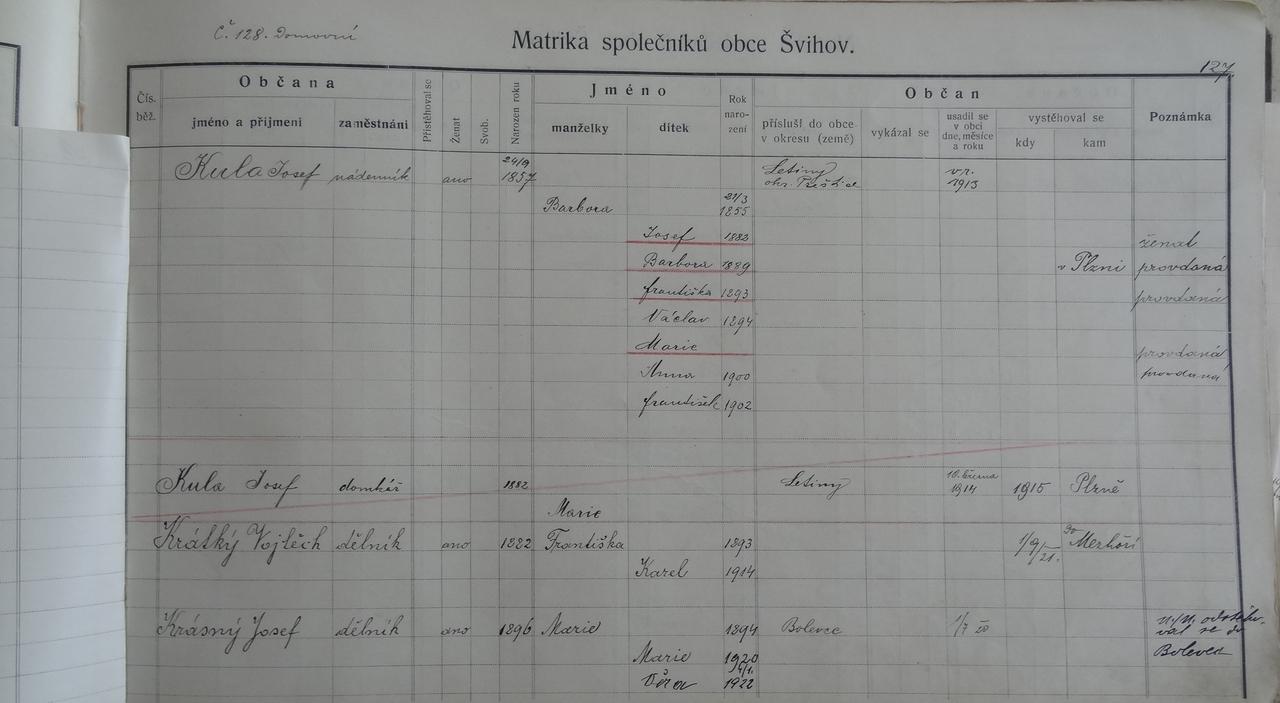 Č 128. Domovní
Matrika společníků obce Švihov.
127.
Čís. běž.
Občana
jméno a přijmení
zaměstnání
Přistěhoval se
Ženat
Svob.
Narozen roku
Jméno
manželky
dítek
Rok naro- zení
Občan
přísluší do obce v okresu (země)
vykázal se
usadil se v obci dne, měsíce a roku
vystěhoval se
kdy
kam
Poznámka
Kula Josef nádenník ano 24/9 1857 Letiny okr. v r. 1913
Barbora 21/3 1855
Josef 1882 ženat
Barbora 1889 v Plzni provdaná
Františka 1893 provdaná
Václav 1894
Marie provdaná
Anna 1900 provdana
František 1902
Kula Josef domkář 1882 Letiny 10. března 1914 1915 Plzně
Marie
Krátký Vojtěch dělník ano 1882 Františka 1893 1/9/21. do Merhóří
Karel 1914
Krásný Josef dělník ano 1896 Marie 1894 Bolevce 1/7 20 11/11. odstěho-
val se do
Marie 1920 Bolevce
Věra 4/1. 1922